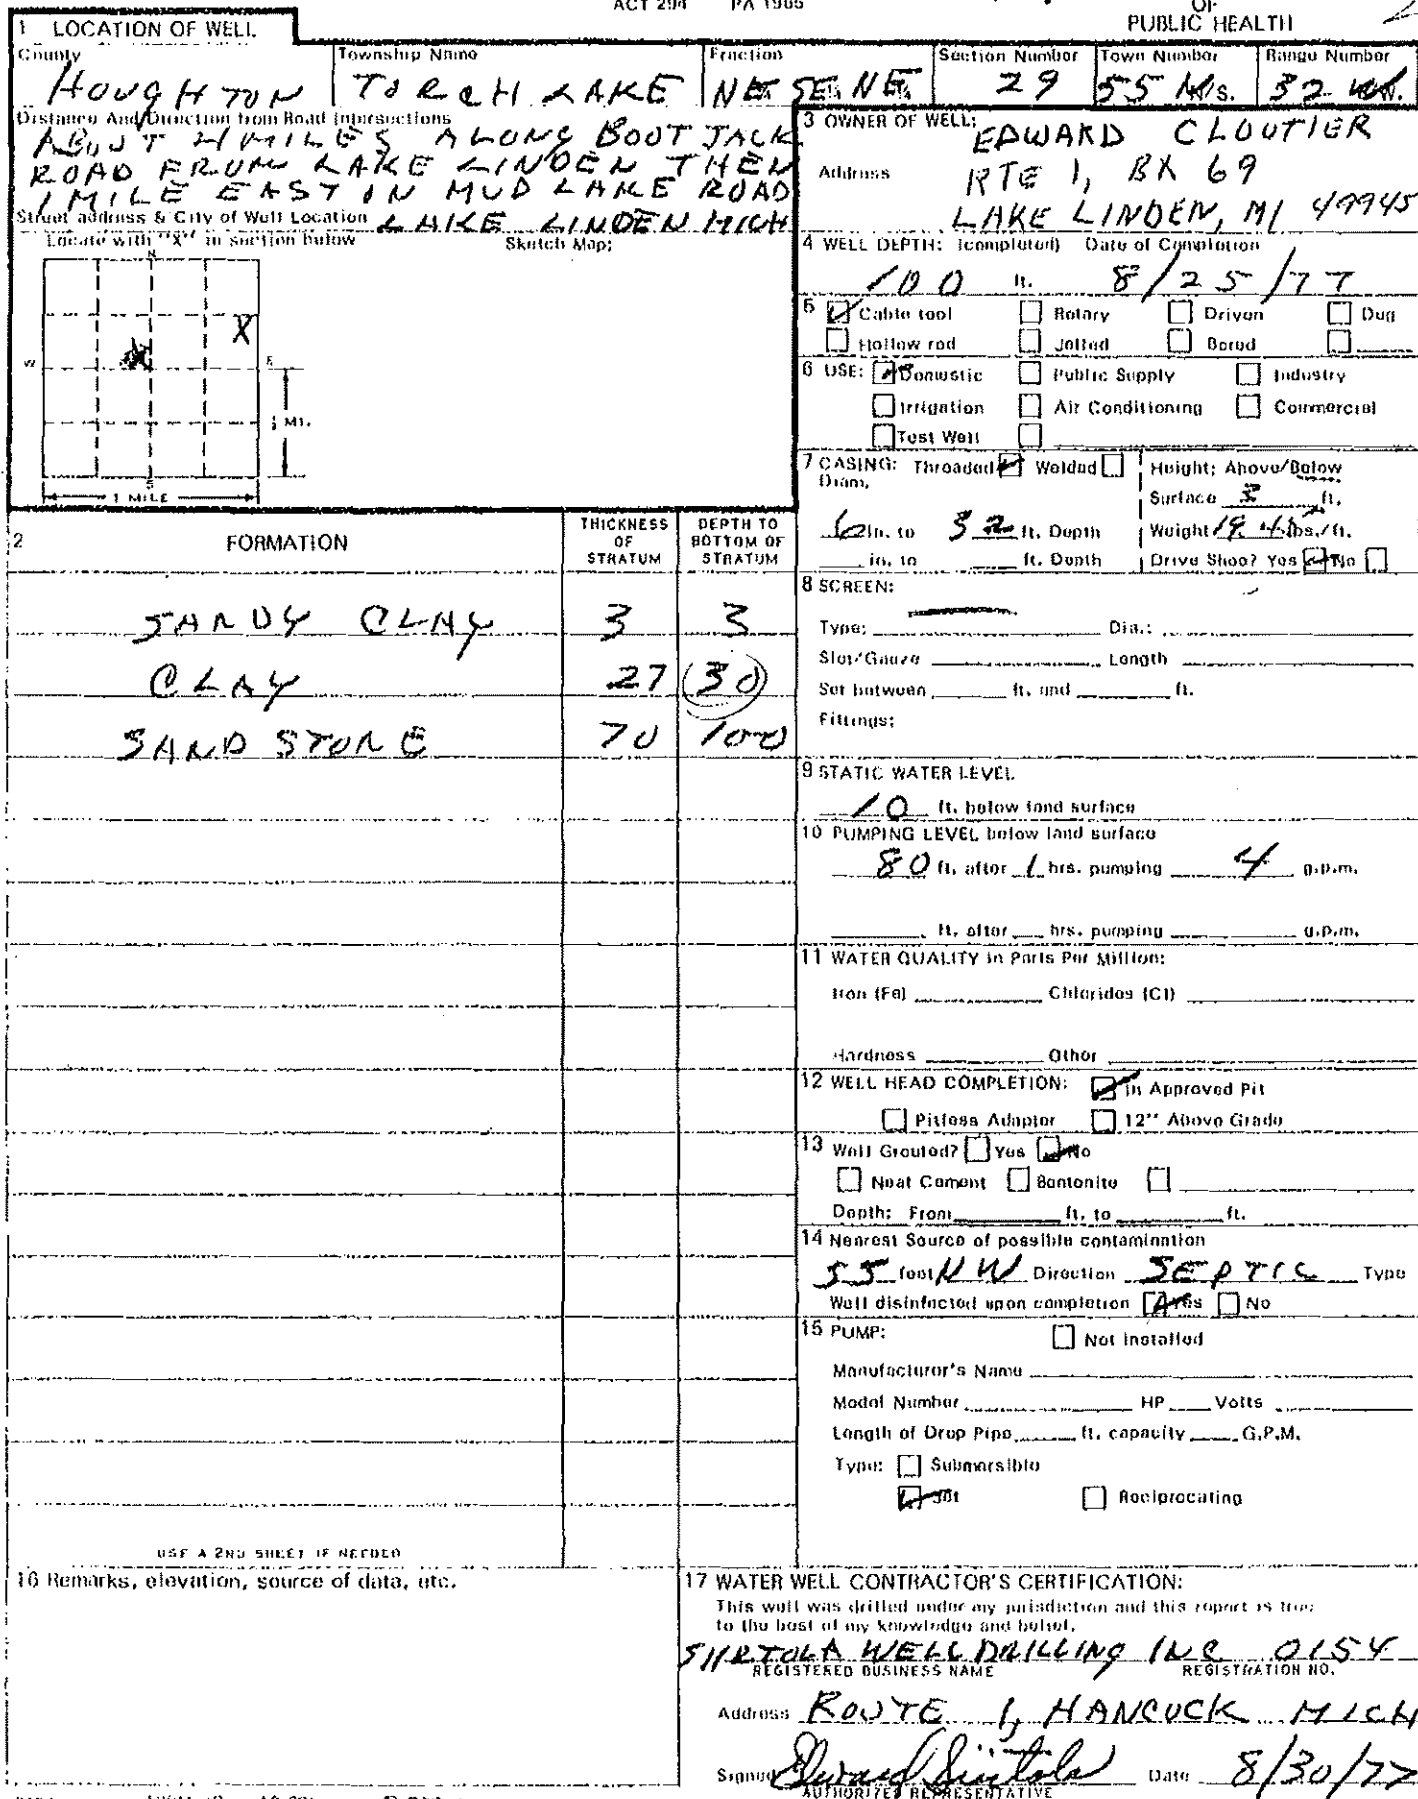 ACT 294 PA 1965
OF
PUBLIC HEALTH
1 LOCATION OF WELL
County
HOUGHTON
Township Name
TORCH LAKE
Fraction
NE SE NE
Section Number
29
Town Number
55 N/S.
Range Number
32
Distance And Direction from Road Intersections
ABOUT 4 MILES ALONG BOOT JACK
ROAD FROM LAKE LINDEN THEN
1 MILE EAST IN MUD LAKE ROAD
Street address & City of Well Location LAKE LINDEN MICH
Locate with "X" in section below
Sketch Map:
N
W
X
E
½ MI.
S
1 MILE
2 FORMATION
THICKNESS OF STRATUM
DEPTH TO BOTTOM OF STRATUM
SANDY CLAY 3 3
CLAY 27 30
SAND STONE 70 100
USE A 2ND SHEET IF NEEDED
3 OWNER OF WELL:
EDWARD CLOUTIER
Address RTE 1, BX 69
LAKE LINDEN, MI 49945
4 WELL DEPTH: (completed) Date of Completion
100 ft. 8/25/77
5 Cable tool Rotary Driven Dug
Hollow rod Jetted Bored
6 USE: Domestic Public Supply Industry
Irrigation Air Conditioning Commercial
Test Well
7 CASING: Threaded Welded
Diam.
Height: Above/Below
Surface ft.
6 in. to 32 ft. Depth
Weight lbs./ft.
in. to ft. Depth
Drive Shoe? Yes No
8 SCREEN:
Type: Dia.:
Slot/Gauze Length
Set between ft. and ft.
Fittings:
9 STATIC WATER LEVEL
10 ft. below land surface
10 PUMPING LEVEL below land surface
80 ft. after 1 hrs. pumping 4 g.p.m.
ft. after hrs. pumping g.p.m.
11 WATER QUALITY in Parts Per Million:
Iron (Fe) Chlorides (Cl)
Hardness Other
12 WELL HEAD COMPLETION: In Approved Pit
Pitless Adapter 12" Above Grade
13 Well Grouted? Yes No
Neat Cement Bentonite
Depth: From ft. to ft.
14 Nearest Source of possible contamination
55 feet NW Direction SEPTIC Type
Well disinfected upon completion Yes No
15 PUMP: Not installed
Manufacturer's Name
Model Number HP Volts
Length of Drop Pipe ft. capacity G.P.M.
Type: Submersible
Jet Reciprocating
16 Remarks, elevation, source of data, etc.
17 WATER WELL CONTRACTOR'S CERTIFICATION:
This well was drilled under my jurisdiction and this report is true
to the best of my knowledge and belief.
SIIRTOLA WELL DRILLING INC 0154
REGISTERED BUSINESS NAME REGISTRATION NO.
Address ROUTE 1, HANCOCK MICH
Signed Edward Siirtola Date 8/30/77
AUTHORIZED REPRESENTATIVE